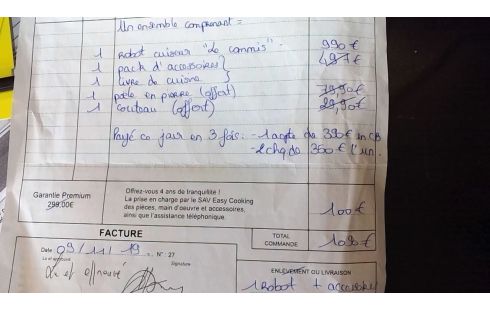 Un ensemble comprenant =
1 Robot cuiseur "le commis" - 990€
1 pack d'accessoires } 497€
1 livre de cuisine }
1 poêle en pierre (offert) 79,90€
1 couteau (offert) 29,90€
Payé ce jour en 3 fois: - 1 acpte de 390€ en CB
- 2 chq de 350€ l'un.
Garantie Premium
299.00€
Offrez-vous 4 ans de tranquilité !
La prise en charge par le SAV Easy Cooking
des pièces, main d'oeuvre et accessoires,
ainsi que l'assistance téléphonique.
100€
FACTURE
TOTAL
COMMANDE
1090€
Date : 09/11/19 N° : 27
Lu et approuvé
Signature
Lu et approuvé
ENLÈVEMENT OU LIVRAISON
1 Robot +